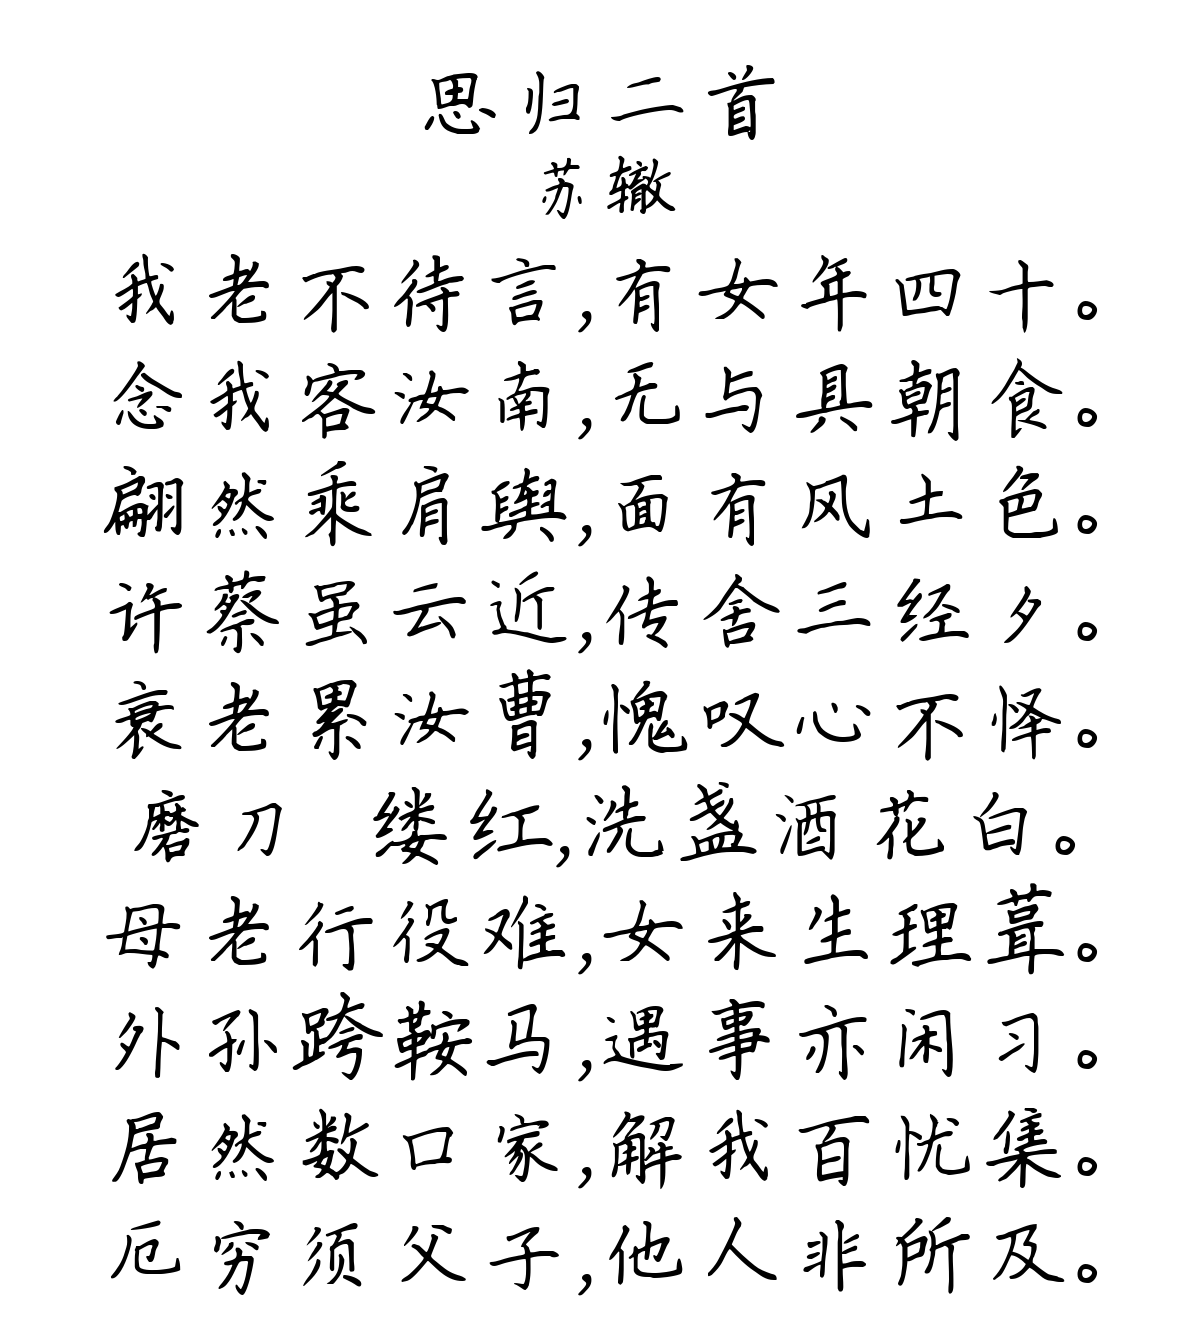 思归二首
苏辙
我老不待言,有女年四十。
念我客汝南,无与具朝食。
翩然乘肩舆,面有风土色。
许蔡虽云近,传舍三经夕。
衰老累汝曹,愧叹心不怿。
磨刀 缕红,洗盏酒花白。
母老行役难,女来生理葺。
外孙跨鞍马,遇事亦闲习。
居然数口家,解我百忧集。
厄穷须父子,他人非所及。